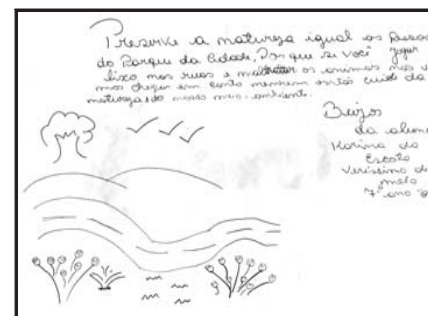 Preserve a natureza igual as pessoas
do Parque da Cidade, Por que se você jogar
lixo nas ruas e maltratar os animas nós v
mos chegar em canto nenhum então cuide da
natureza e do nosso meio-ambiente.
Beijos
da aluna
Karina da
Escola
Veríssimo de
melo
7º ano